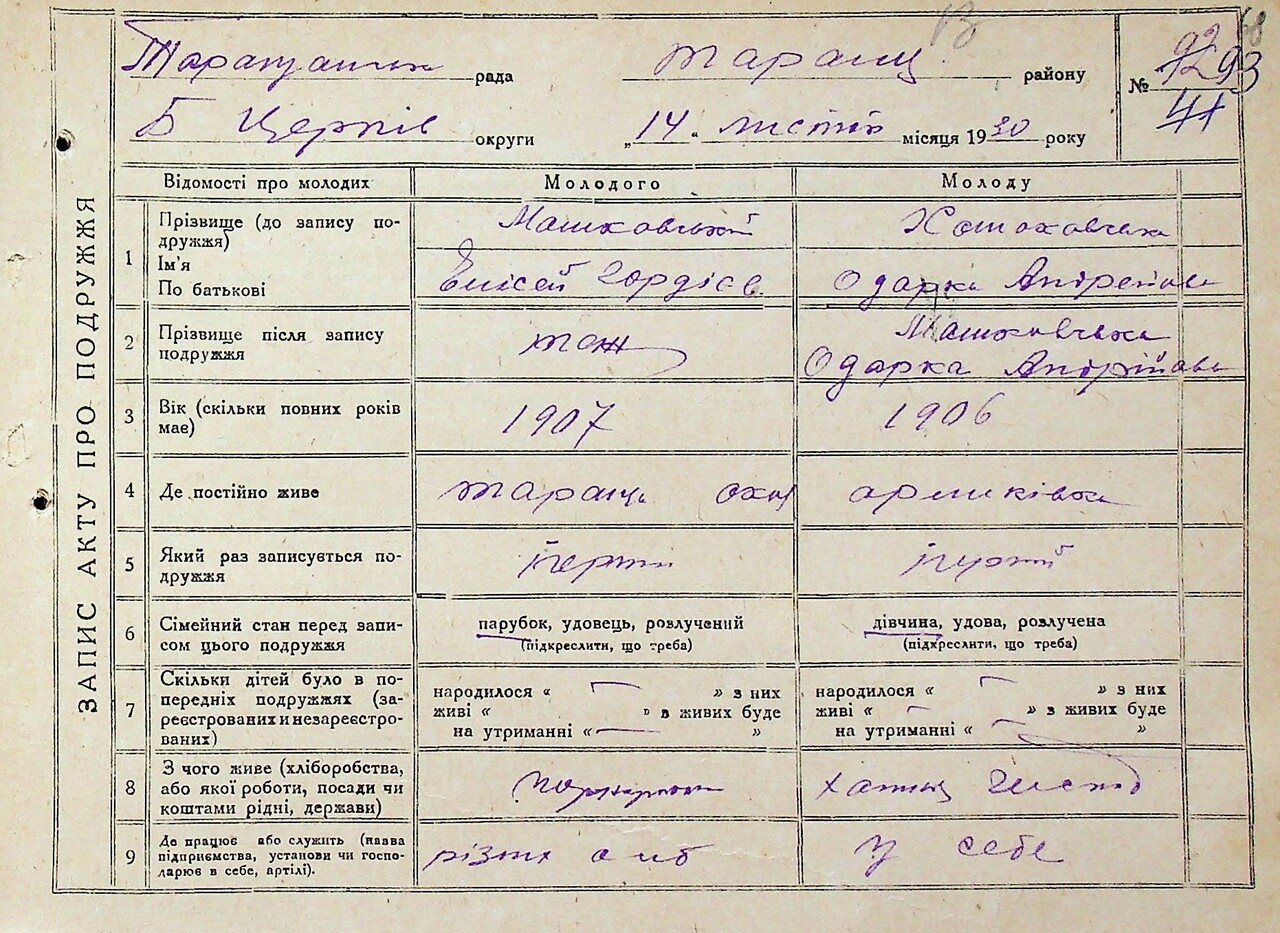 ЗАПИС АКТУ ПРО ПОДРУЖЖЯ
рада Таращ району
Б Церків округи „14 “ листоп місяця 1930 року
№ 92 93
41
Відомості про молодих Молодого Молоду
1 Прізвище (до запису по-
дружжя)
Ім'я
По батькові
Машковський
Елісей Гордієв
Одарка Андреївна
2 Прізвище після запису
подружжя
тож
Машковська
Одарка Андріївна
3 Вік (скільки повних років
має)
1907 1906
4 Де постійно живе
Тараща
5 Який раз записується по-
дружжя
перший перший
6 Сімейний стан перед запи-
сом цього подружжя
парубок, удовець, розлучений
(підкреслити, що треба)
дівчина, удова, розлучена
(підкреслити, що треба)
7 Скільки дітей було в по-
передніх подружжях (за-
реєстрованих и незареєстро-
ваних)
народилося « — » з них
живі « » в живих буде
на утриманні « — »
народилося « — » з них
живі « — » з живих буде
на утриманні « — »
8 З чого живе (хліборобства,
або якої роботи, посади чи
коштами рідні, держави)
9 Де працює або служить (назва
підприємства, установи чи госпо-
дарює в себе, артілі).
різних осіб
у себе